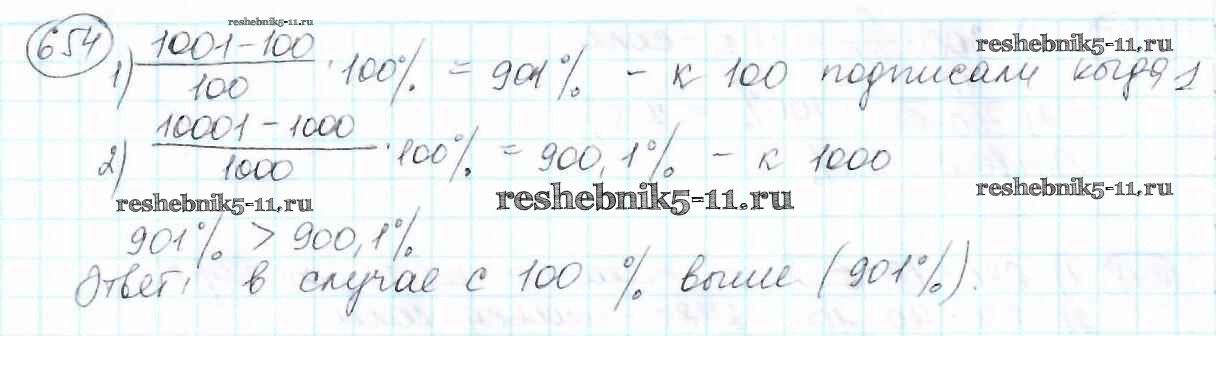 reshebnik5-11.ru
654
reshebnik5-11.ru
1) (1001-100)/100 · 100% = 901% - к 100 подписали когда 1
2) (10001-1000)/1000 · 100% = 900,1% - к 1000
reshebnik5-11.ru
reshebnik5-11.ru
reshebnik5-11.ru
901% > 900,1%
Ответ: в случае с 100 % выше (901%).